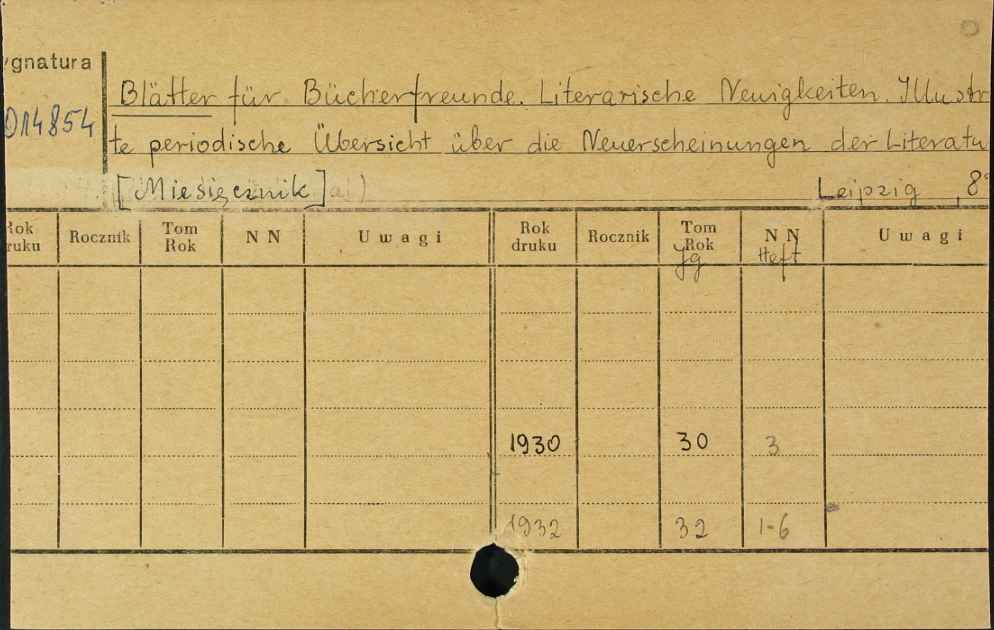 ygnatura
014854
Blätter für Bücherfreunde. Literarische Neuigkeiten. Illustr
te periodische Übersicht über die Neuerscheinungen der Literatu
[Miesięcznik] Leipzig, 8°
Rok druku Rocznik Tom Rok N N Uwagi Rok druku Rocznik Tom Rok N N Uwagi
Jg Heft
1930 30 3
1932 32 1-6